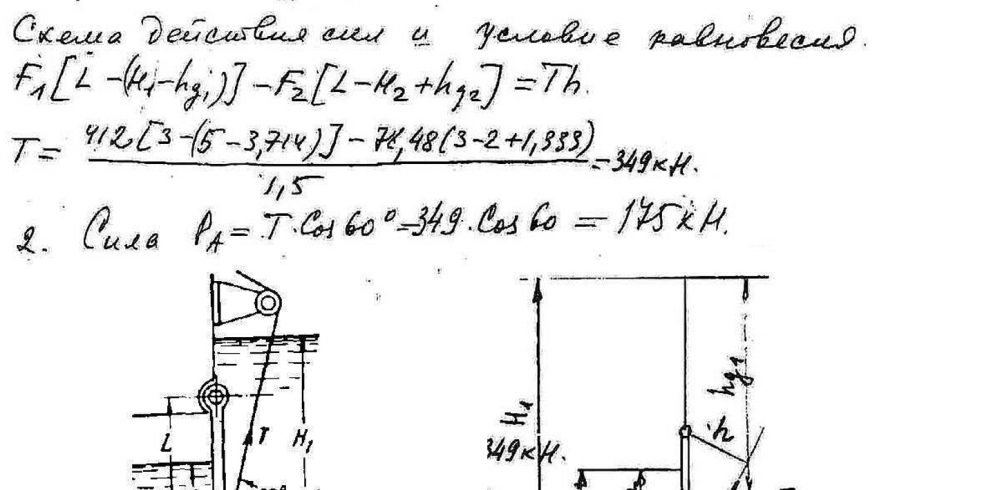 Схема действия сил и условие равновесия.
F₁[L-(H₁-hg₁)]-F₂[L-H₂+hg₂]=Th.
T= 412[3-(5-3,714)]-78,48(3-2+1,333) / 1,5 =349кН.
2. Сила P_A=T·Cos60°=349·Cos60=175кН.
H₁
hg₁
h
L
T
H₁
349кН.